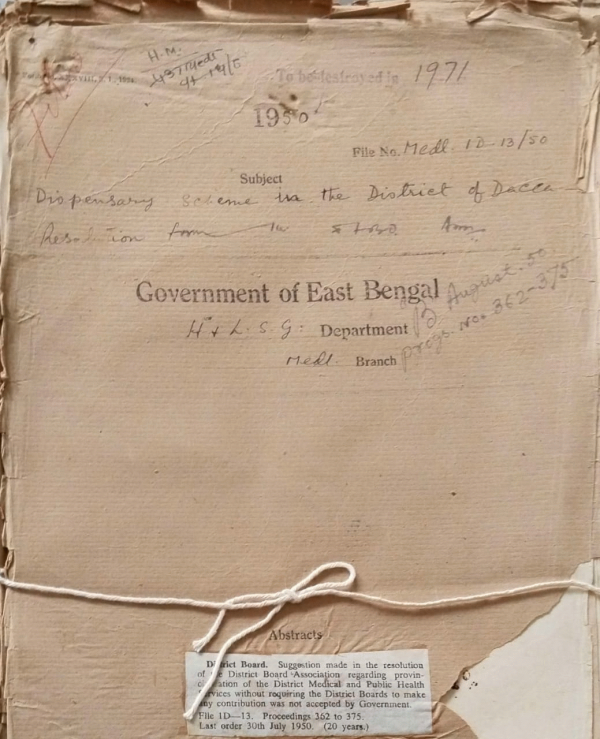 H. M.
To be destroyed in 1971
1950
File No. Medl. 1D-13/50
Subject
Dispensary scheme in the District of Dacca
Resolution from
Government of East Bengal
H & L. S. G. Department
Medl. Branch
B August. 50
Progs. No. 362-375
Abstracts
District Board. Suggestion made in the resolution
of the District Board Association regarding provin-
cialisation of the District Medical and Public Health
Services without requiring the District Boards to make
any contribution was not accepted by Government.
File 1D—13. Proceedings 362 to 375.
Last order 30th July 1950. (20 years.)